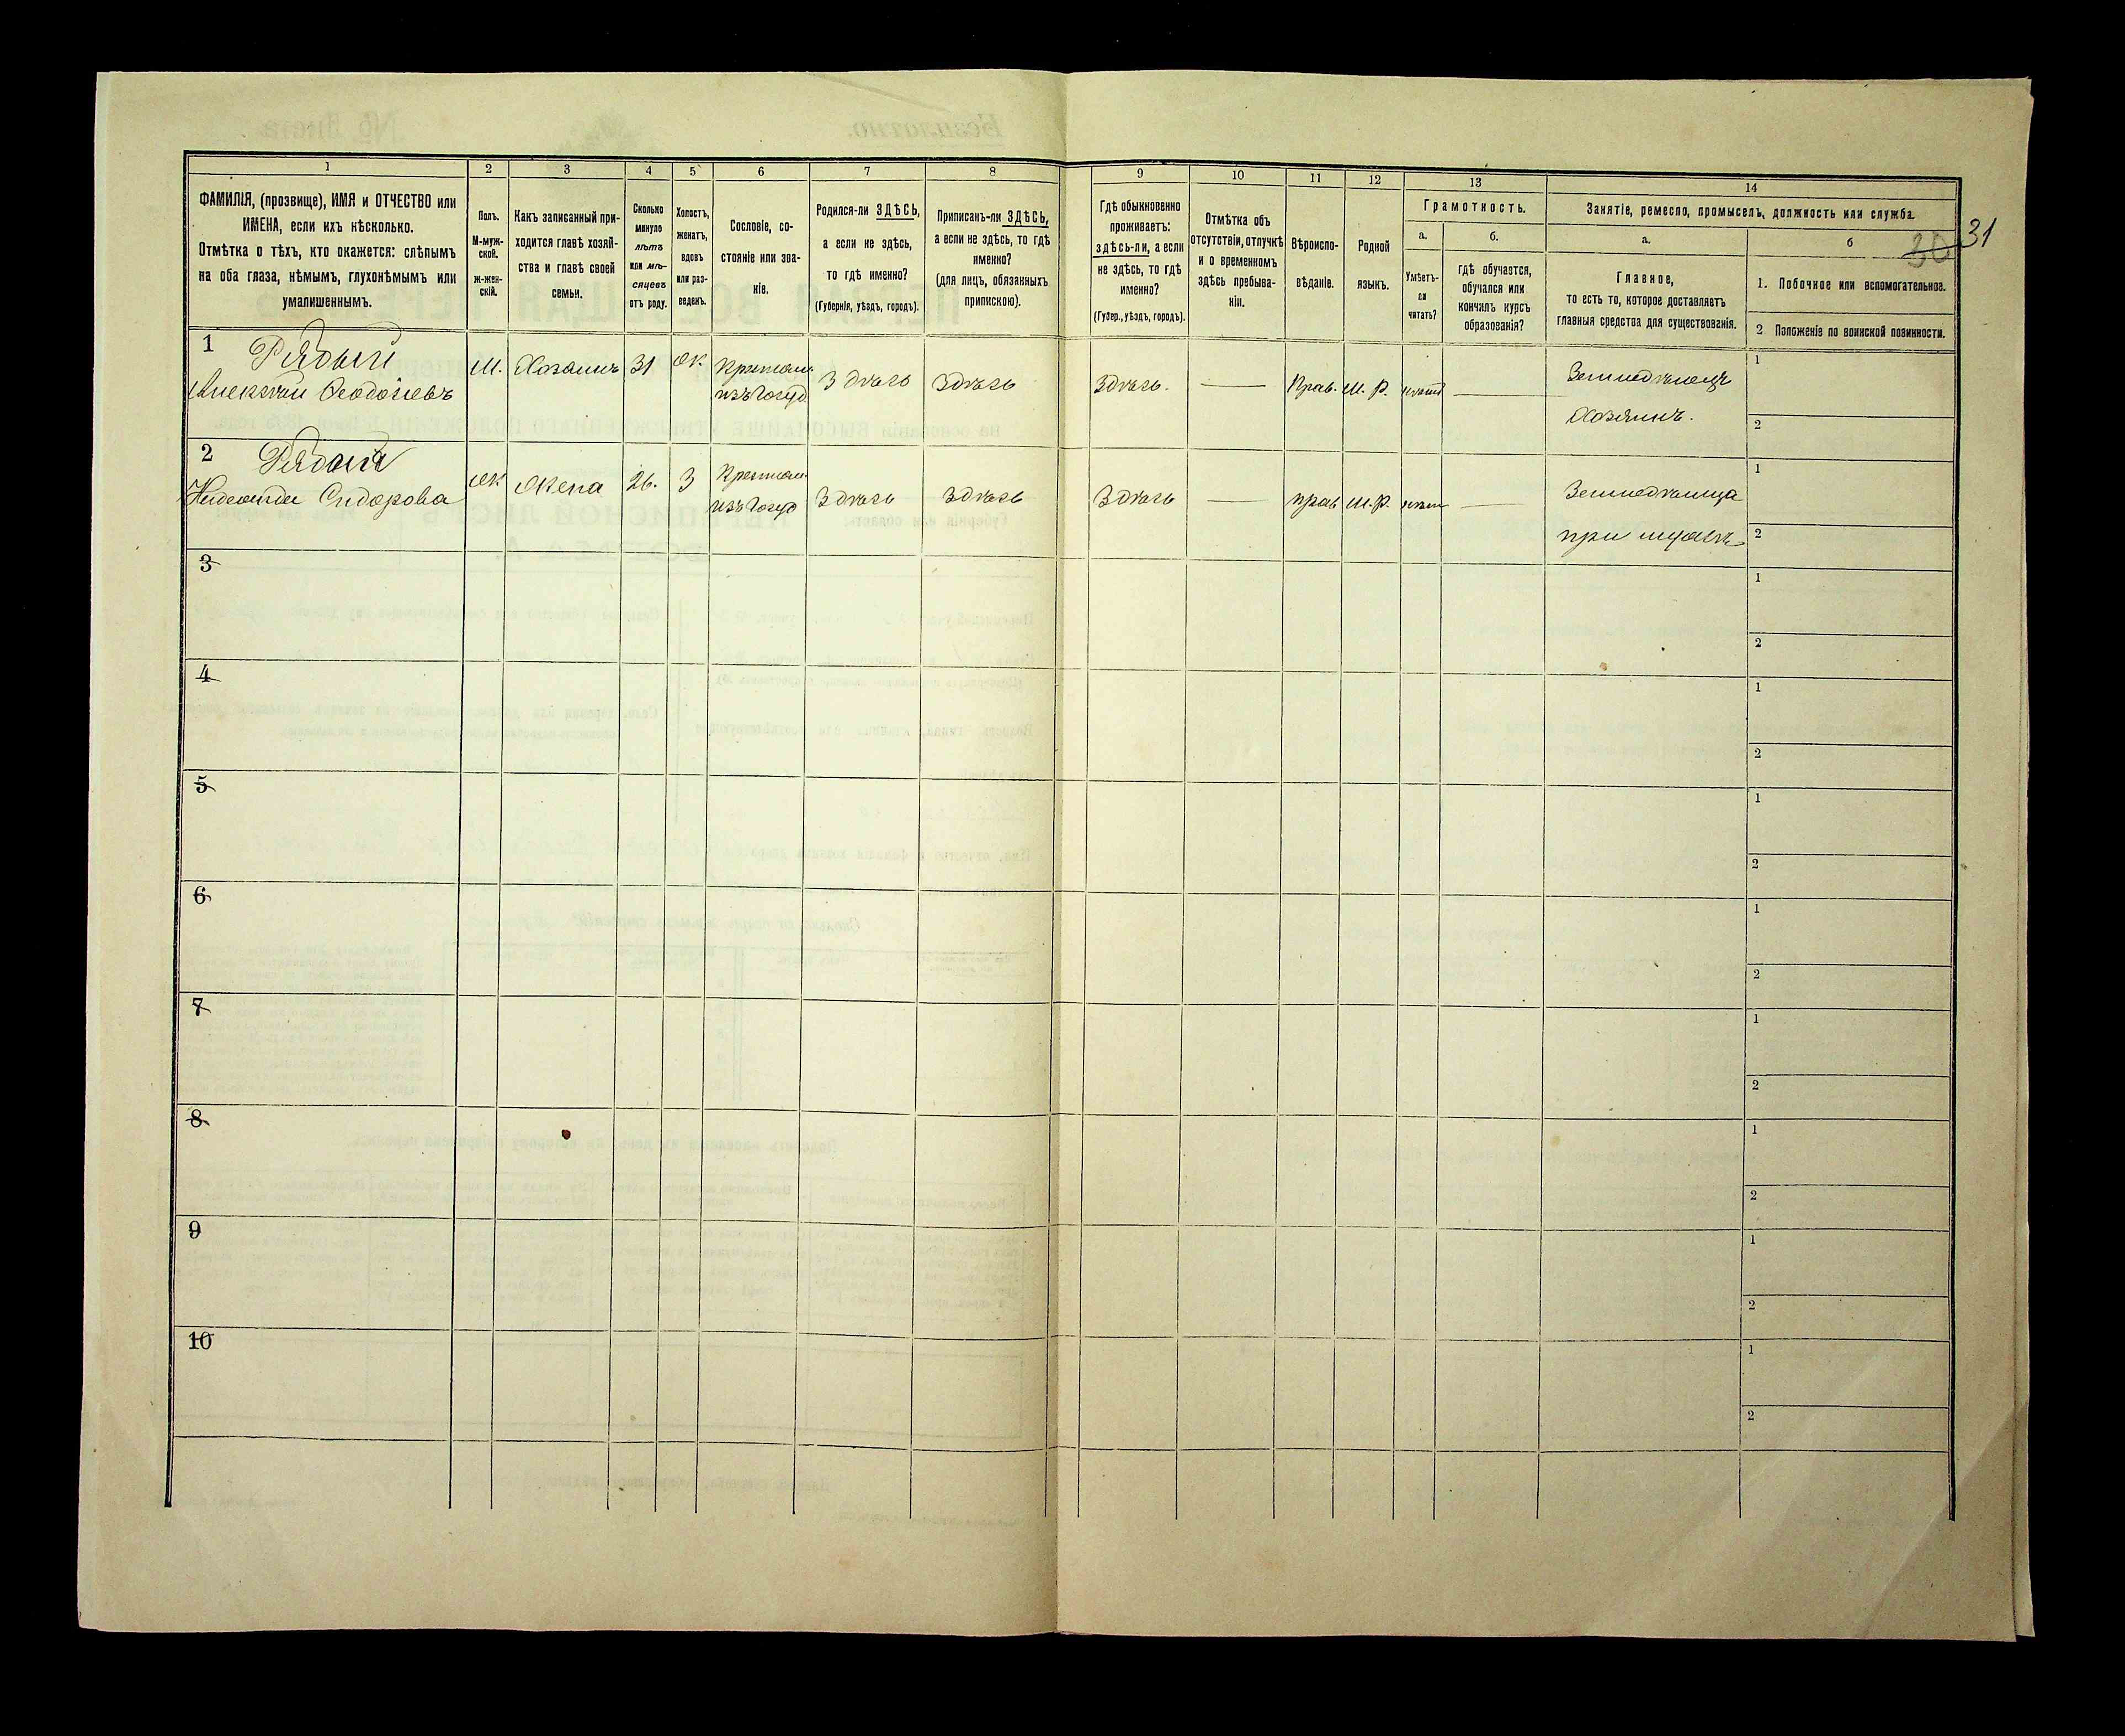 1 2 3 4 5 6 7 8 9 10 11 12 13 14
ФАМИЛІЯ, (прозвище), ИМЯ и ОТЧЕСТВО или
ИМЕНА, если ихъ нѣсколько.
Отмѣтка о тѣхъ, кто окажется: слѣпымъ
на оба глаза, нѣмымъ, глухонѣмымъ или
умалишеннымъ.
Полъ.
М-муж-
ской.
ж-жен-
скій.
Какъ записанный при-
ходится главѣ хозяй-
ства и главѣ своей
семьи.
Сколько
минуло
лѣтъ
или мѣ-
сяцевъ
отъ роду.
Холостъ,
женатъ,
вдовъ
или раз-
веденъ.
Сословіе, со-
стояніе или зва-
ніе.
Родился-ли ЗДѢСЬ,
а если не здѣсь,
то гдѣ именно?
(Губернія, уѣздъ, городъ).
Приписанъ-ли ЗДѢСЬ,
а если не здѣсь, то гдѣ
именно?
(для лицъ, обязанныхъ
припискою).
Гдѣ обыкновенно
проживаетъ:
здѣсь-ли, а если
не здѣсь, то гдѣ
именно?
(Губер., уѣздъ, городъ).
Отмѣтка объ
отсутствіи, отлучкѣ
и о временномъ
здѣсь пребыва-
ніи.
Вѣроиспо-
вѣданіе.
Родной
языкъ.
Грамотность.
а.
Умѣетъ-
ли
читать?
б.
гдѣ обучается,
обучался или
кончилъ курсъ
образованія?
Занятіе, ремесло, промыселъ, должность или служба.
а.
Главное,
то есть то, которое доставляетъ
главныя средства для существованія.
б
1. Побочное или вспомогательное.
2 Положеніе по воинской повинности.
30 31
1 Рядый
Алексѣй Ѳеодосіевъ
М. Хозяинъ 31 Ж.
Здѣсь Здѣсь Здѣсь. — Прав. М. Р. —
Земледѣлецъ
Хозяинъ.
1
2
2
Сидорова
Ж Жена 26. З
Здѣсь Здѣсь Здѣсь — прав М. Р. —
при мужѣ
1
2
3
1
2
4
1
2
5
1
2
6
1
2
7
1
2
8
1
2
9
1
2
10
1
2